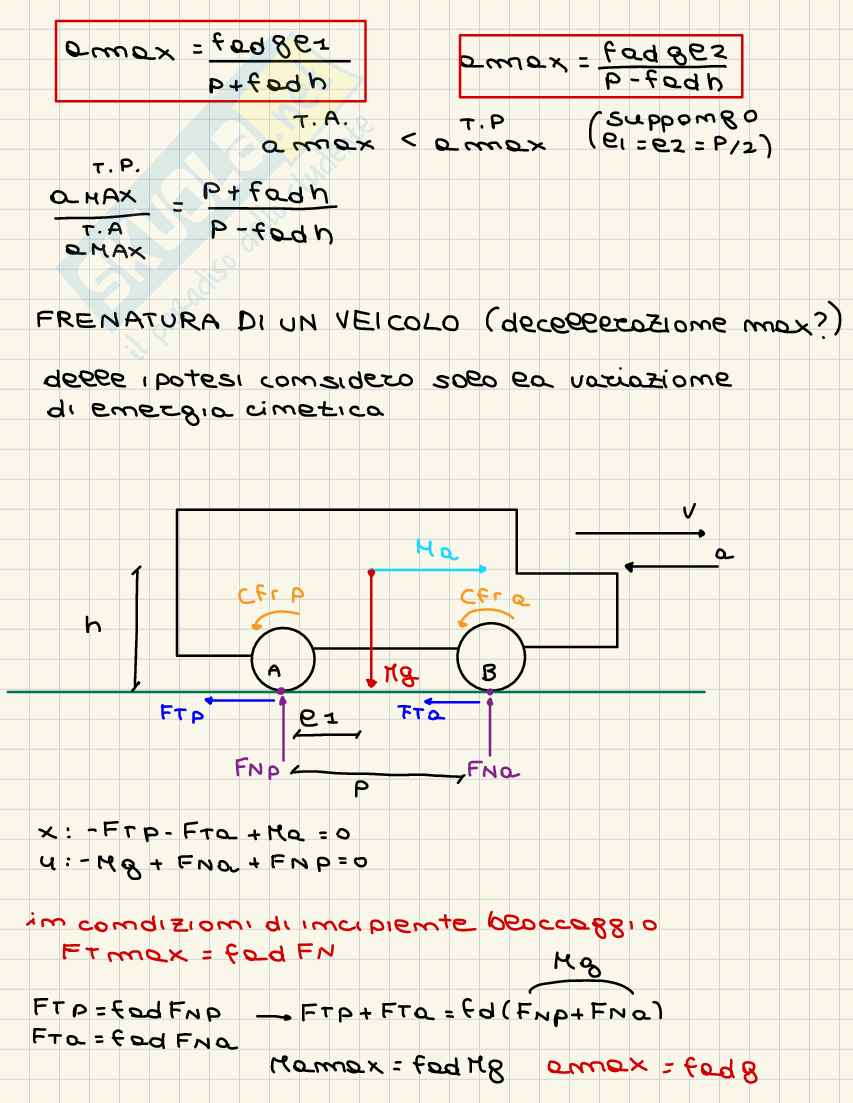 amax = fad g e1 / p + fad h
amax = fad g e2 / p - fad h
T.A. T.P
amax < amax (suppongo e1 = e2 = P/2)
T.P.
aMAX / aMAX = p + fad h / p - fad h
T.A
SKUOLA.net
il paradiso dello studente
FRENATURA DI UN VEICOLO (decellerazione max?)
delle ipotesi considero solo la variazione
di energia cinetica
V
a
Ma
CFr p
CFr a
h
A
Mg
B
FTp
e1
FTa
FNp
FNa
P
x: -FTp - FTa + Ma = 0
y: -Mg + FNa + FNp = 0
in condizioni di incipiente bloccaggio
FTmax = fad FN
Mg
FTp = fad FNp → FTp + FTa = fd (FNp + FNa)
FTa = fad FNa
Mamax = fad Mg amax = fad g